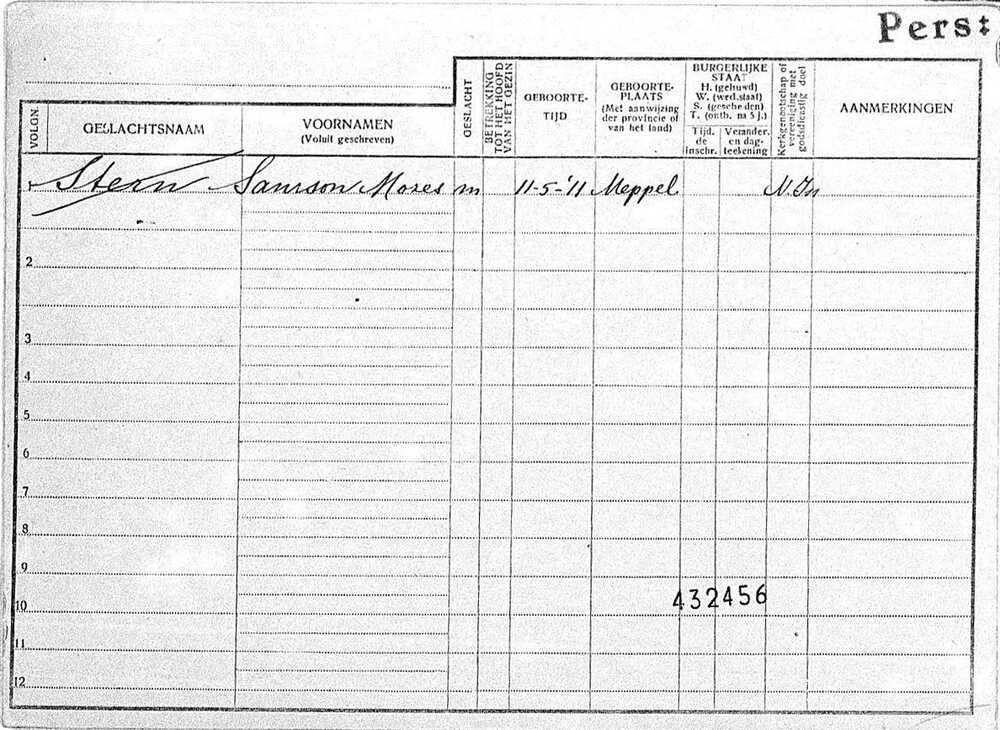 Pers:
VOLGN.
GESLACHTSNAAM
VOORNAMEN
(Voluit geschreven)
GESLACHT
BETREKKING
TOT HET HOOFD
VAN HET GEZIN
GEBOORTE-
TIJD
GEBOORTE-
PLAATS
(Met aanwijzing
der provincie of
van het land)
BURGERLIJKE
STAAT
H. (gehuwd)
W. (wed.staat)
S. (gescheiden)
T. (ontb. na 5 j.)
Tijd.
de
inschr.
Verander.
en dag-
teekening
Kerkgenootschap of
vereeniging met
godsdienstig doel
AANMERKINGEN
1 Stern Samson Mozes m 11-5-'11 Meppel N.Is
2
3
4
5
6
7
8
9
432456
10
11
12